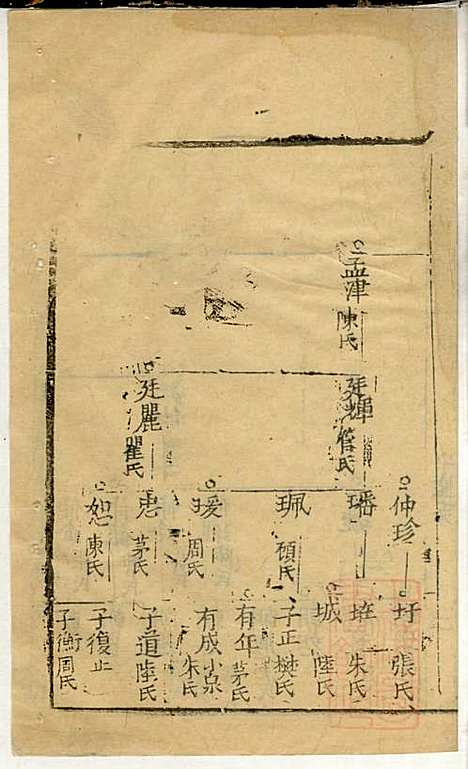 孟津 陳氏
廷 管氏
廷麗 瞿氏
仲珍
璠
珮 碩氏
瑗 周氏
忠 茅氏
恕 陳氏
圩 張氏
垤 朱氏
城 陸氏
子正 樊氏
有年 茅氏
有成 小泉 朱氏
子道 陸氏
子復 止
子衡 周氏